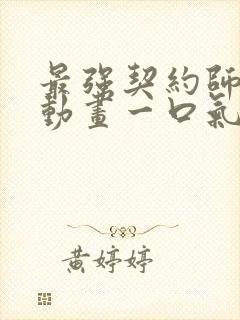 最強契約師
動畫一口氣
黃婷婷